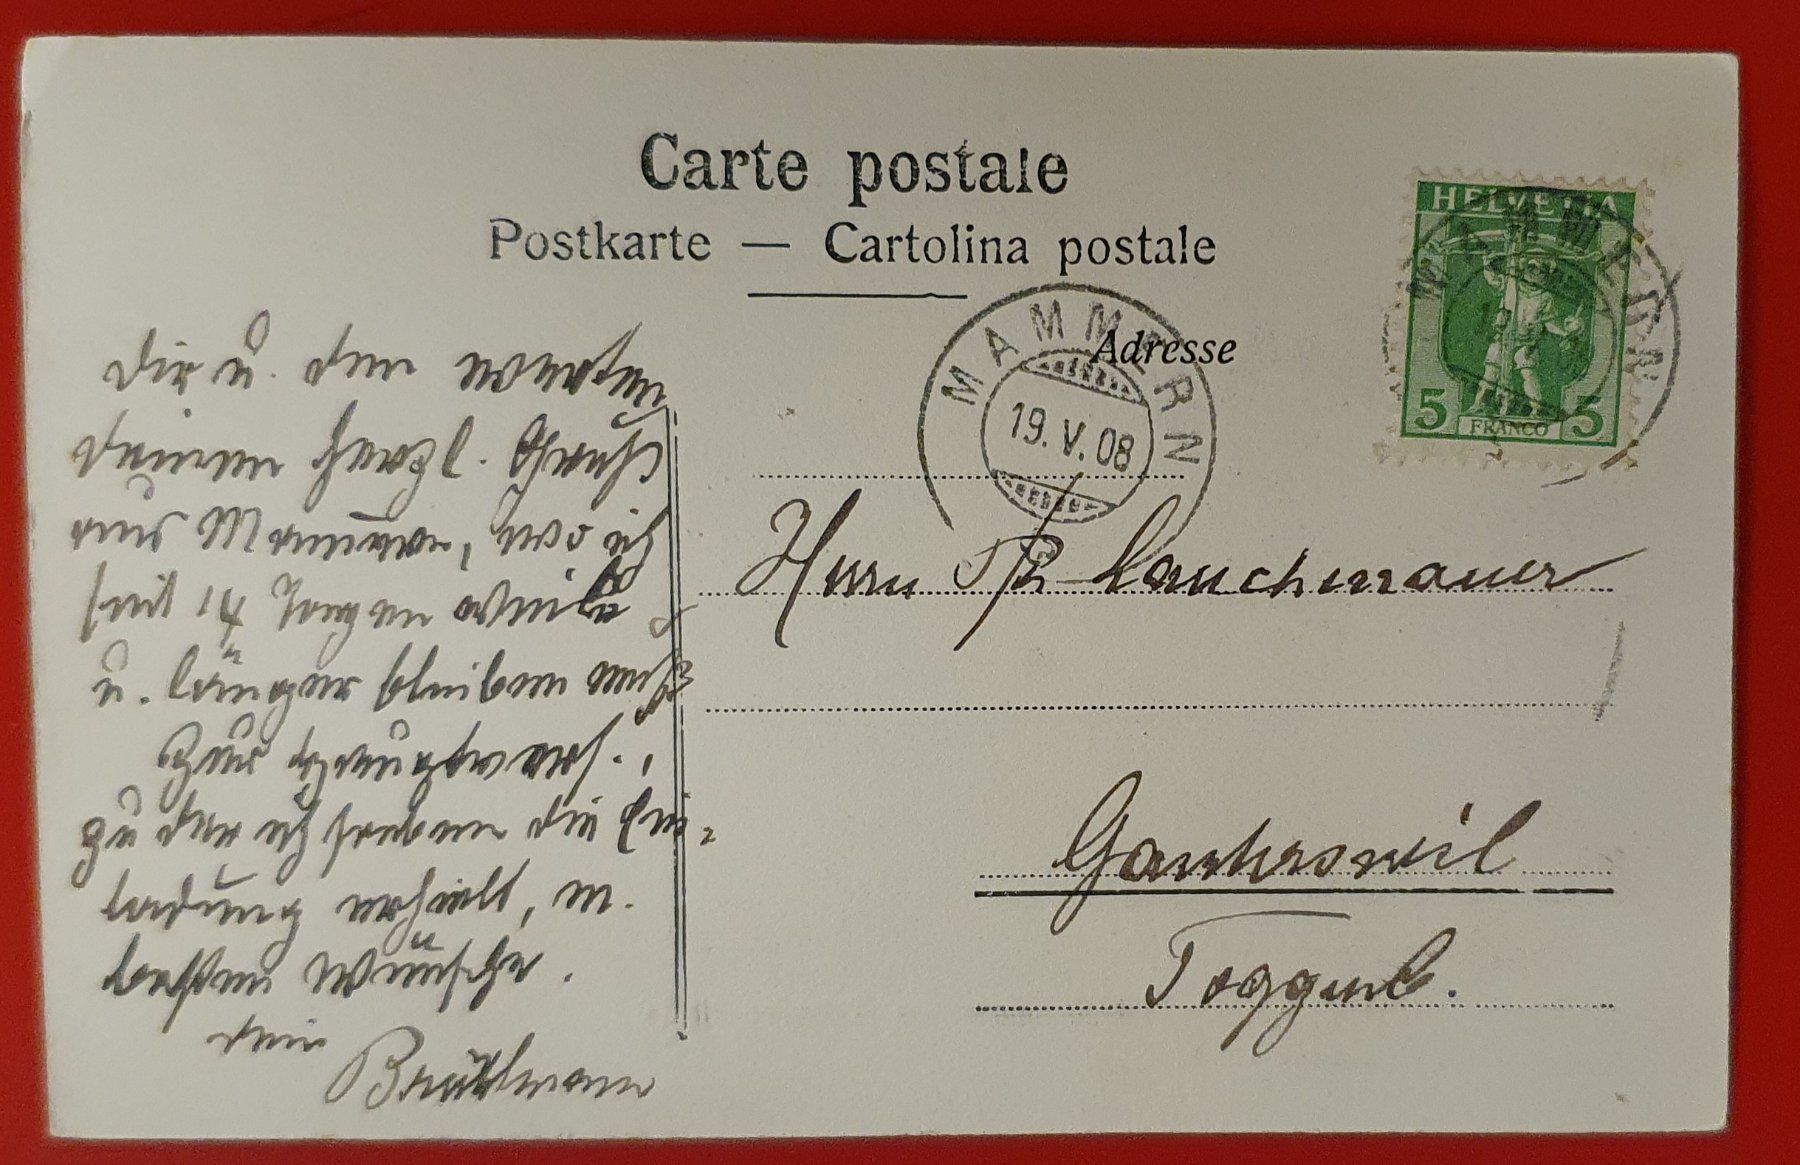 Carte postale
Postkarte — Cartolina postale
Adresse
HELVETIA
5 FRANCO 5
MAMMERN
MAMMERN
19.V.08
Dir u. den werten
deinen herzl. Gruß
aus Mammern, wo ich
seit 14 Tagen weile
u. länger bleiben muß
Zur
zu der ich soeben die Ein-
ladung erhielt, m.
besten Wünsche.
dein
Herrn Lauchenauer
Ganterswil
Toggenb.